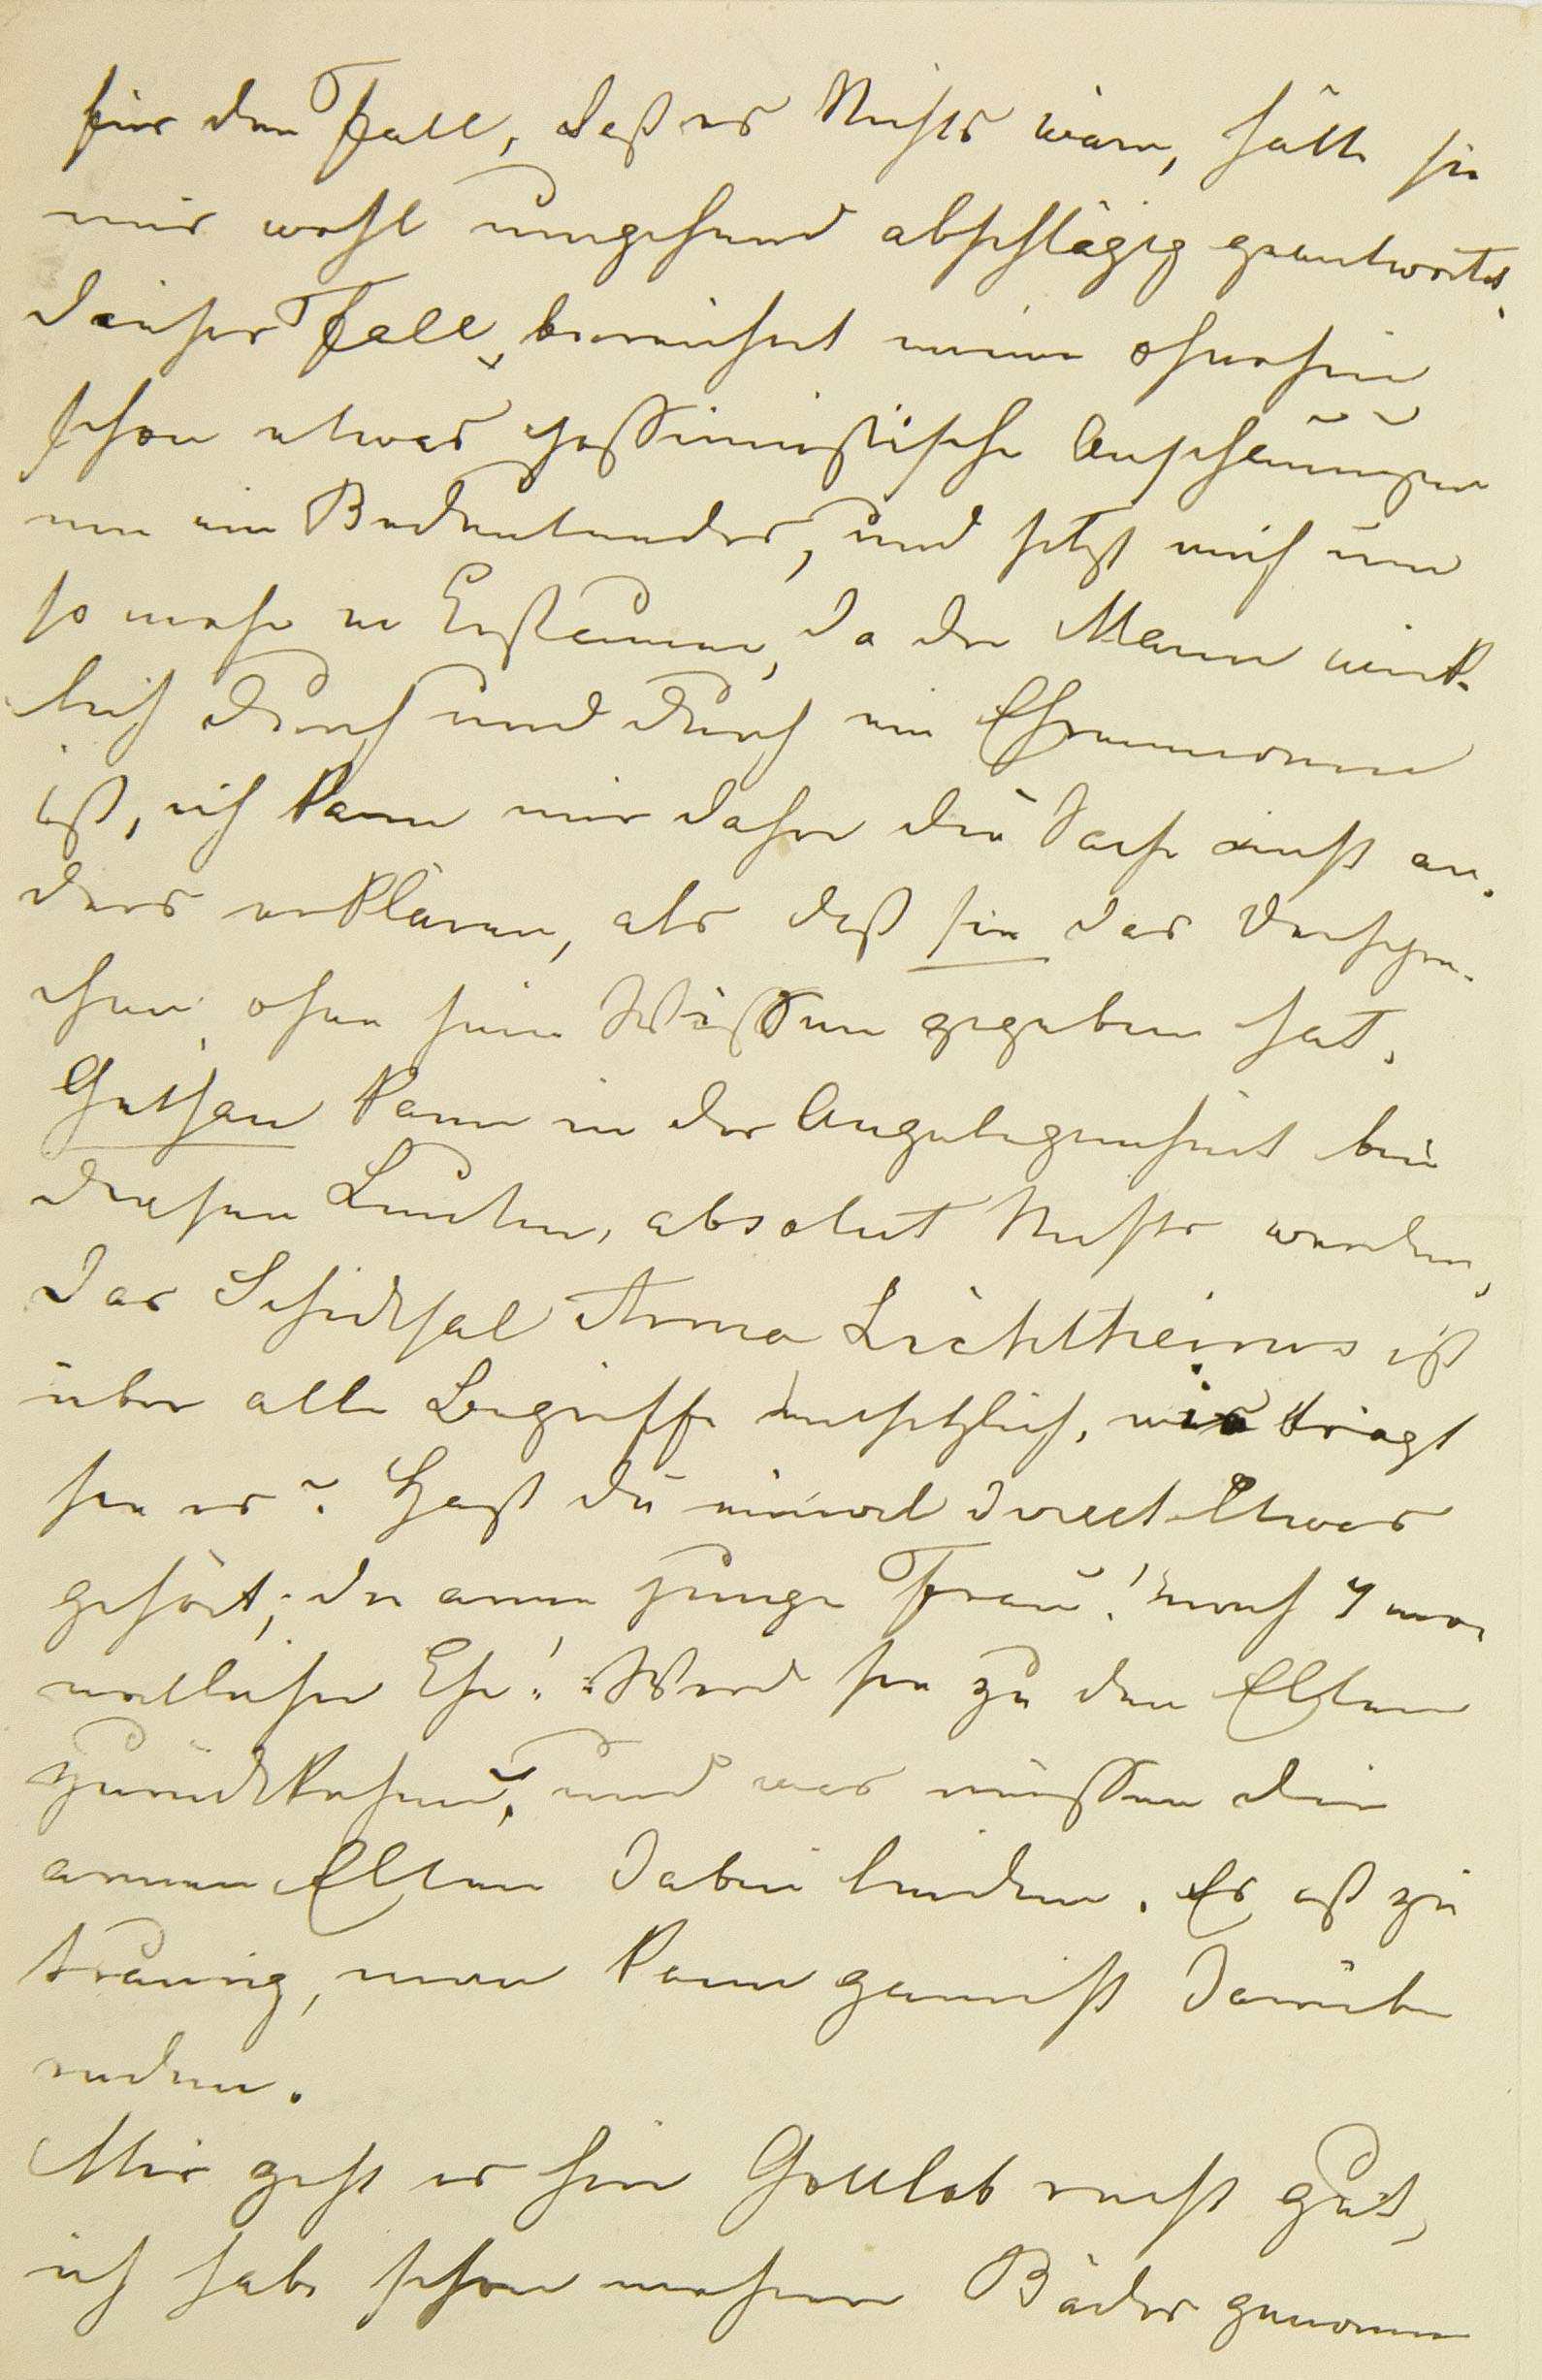 für den Fall, daß es Nichts wäre, hätte sie
mir wohl umgehend abschlägig geantwortet,
dieser Fall, bereichert meine ohnehin
schon etwas pessimistische Anschauungen
um ein Bedeutendes, und setzt mich um
so mehr in Erstaunen, da der Mann wirk-
lich durch und durch ein Ehrenmann
ist, ich kann mir daher die Sache nicht an-
ders erklären, als daß sie das Verspre-
chen, ohne sein Wissen gegeben hat.
Gethan kann in der Angelegenheit bei
diesen Leuten, absolut Nichts werden,
Das Schicksal Anna Lichtheims ist
über alle Begriffe entsetzlich, wie trägt
sie es? Hast du einmal direct Etwas
gehört; die arme junge Frau! nach 4 mo-
natlicher Ehe! Wird sie zu den Eltern
zurückkehren, und was müssen die
armen Eltern dabei leiden. Es ist zu
traurig, man kann garnicht darüber
reden.
Mir geht es hier Gottlob recht gut,
ich habe schon mehrere Bäder genommen